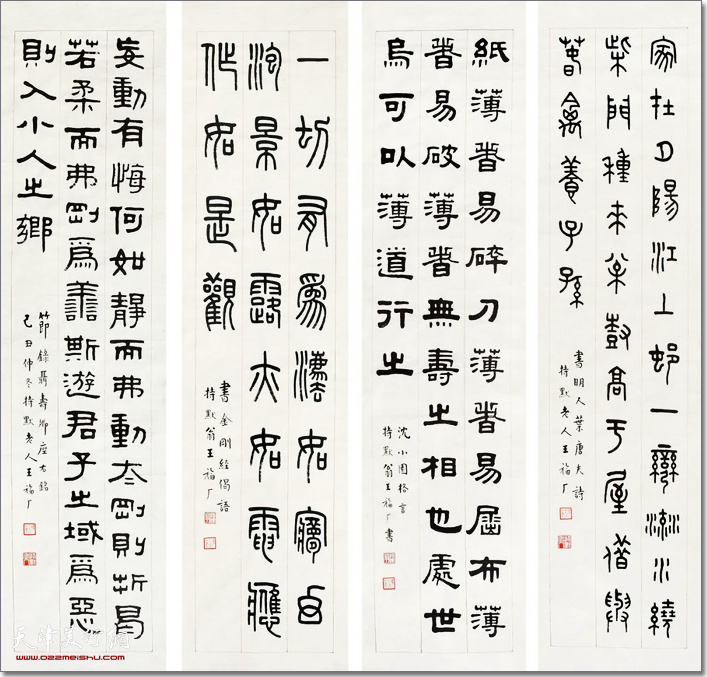 家在夕陽江上邨一彎流水繞
柴門種來松尌高于屋借與
春禽養子孫
書明人葉唐夫詩
持默老人王福厂
紙薄者易碎刀薄者易屈布薄
者易破薄者無壽之相也處世
烏可以薄道行之
沈小園格言
持默翁王福厂書
一切有爲灋如夢幻
泡景如露亦如電應
作如是觀
書金剛經偈語
持默翁王福厂
妄動有悔何如静而弗動太剛則折曷
若柔而弗剛爲善斯遊君子之域爲惡
則入小人之鄉
節錄聶壽卿座右銘
己丑仲冬持默老人王福厂
天津美术网
www.022meishu.com